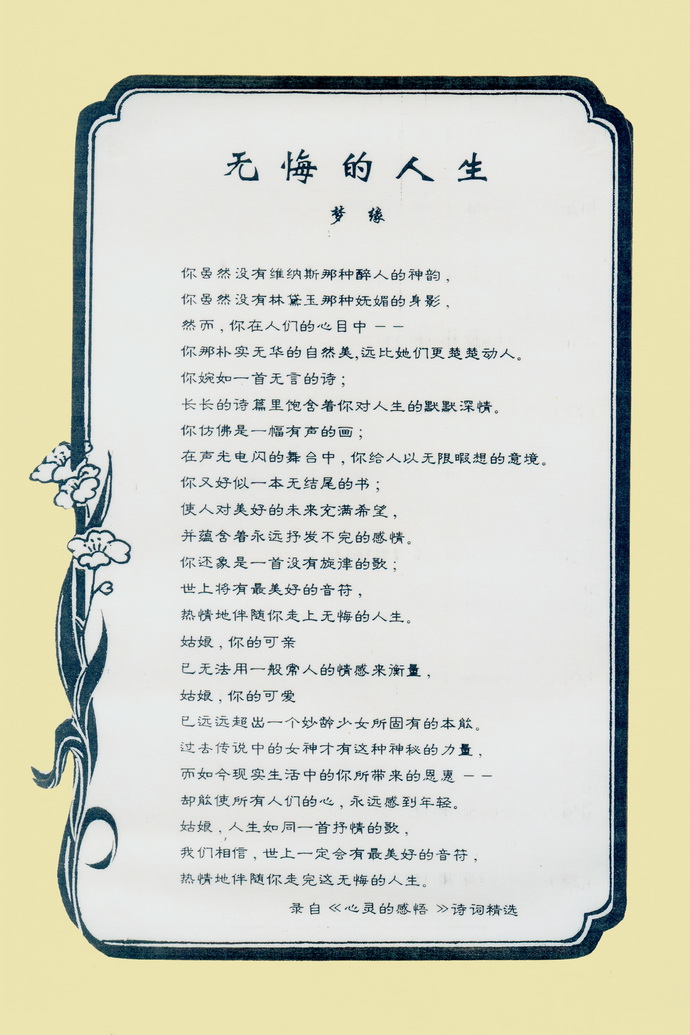 无悔的人生
梦缘
你虽然没有维纳斯那种醉人的神韵，
你虽然没有林黛玉那种妩媚的身影，
然而，你在人们的心目中－－
你那朴实无华的自然美,远比她们更楚楚动人。
你婉如一首无言的诗；
长长的诗篇里饱含着你对人生的默默深情。
你仿佛是一幅有声的画；
在声光电闪的舞台中，你给人以无限暇想的意境。
你又好似一本无结尾的书；
使人对美好的未来充满希望，
并蕴含着永远抒发不完的感情。
你还象是一首没有旋律的歌；
世上将有最美好的音符，
热情地伴随你走上无悔的人生。
姑娘，你的可亲
已无法用一般常人的情感来衡量，
姑娘，你的可爱
已远远超出一个妙龄少女所固有的本能。
过去传说中的女神才有这种神秘的力量，
而如今现实生活中的你所带来的恩惠－－
却能使所有人们的心，永远感到年轻。
姑娘，人生如同一首抒情的歌，
我们相信，世上一定会有最美好的音符，
热情地伴随你走完这无悔的人生。
录自《心灵的感悟》诗词精选